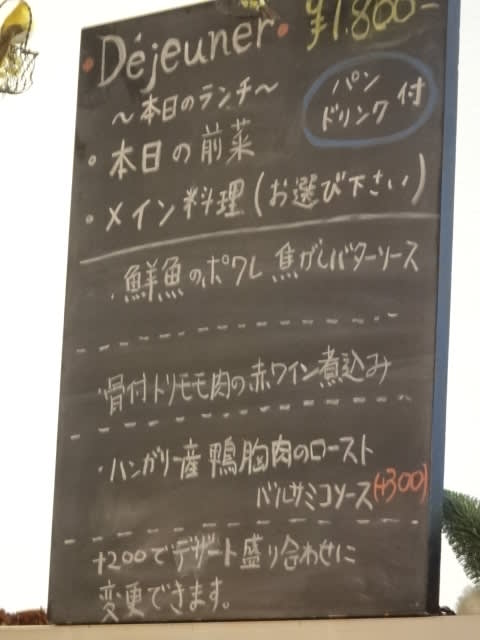 ・Déjeuner・ ¥1.800-
～本日のランチ～
パン
ドリンク 付
・本日の前菜
・メイン料理(お選び下さい)
・鮮魚のポワレ 焦がしバターソース
・骨付トリモモ肉の赤ワイン煮込み
・ハンガリー産 鴨胸肉のロースト
バルサミコソース(+300)
+200でデザート盛り合わせに
変更できます。